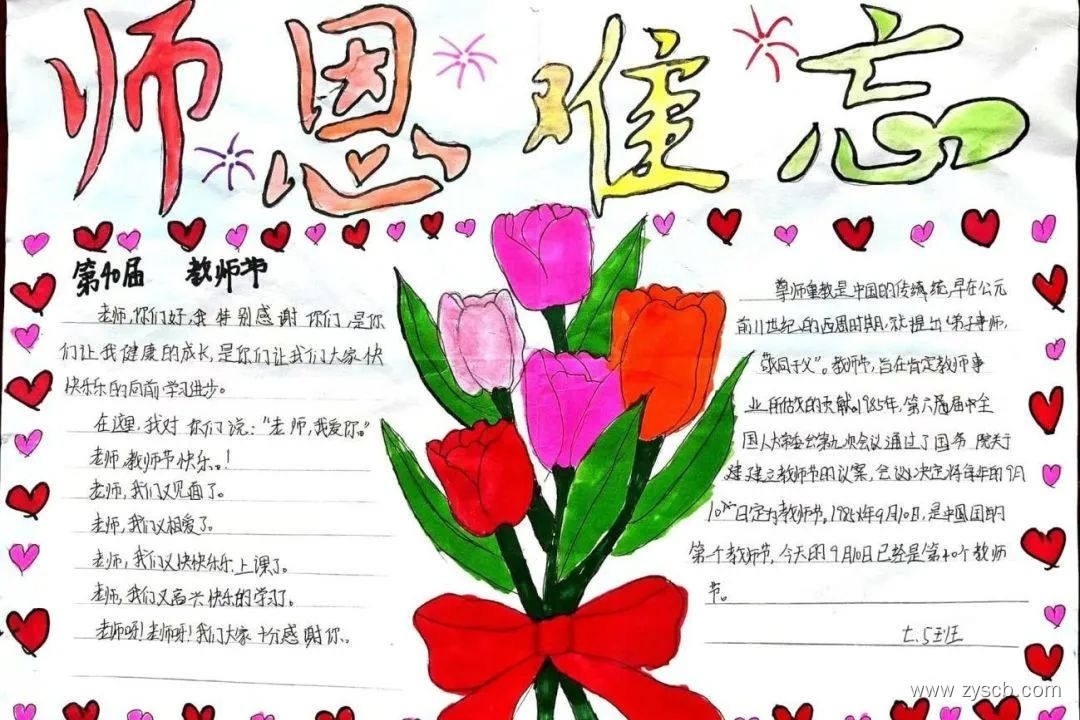 师恩难忘
第40届 教师节
老师,你们好,我特别感谢你们,是你
们让我健康的成长,是你们让我们大家快
快乐乐的向前学习进步。
在这里,我对你们说:"老师,我爱你。"
老师,教师节快乐。!
老师,我们又见面了。
老师,我们又相爱了。
老师,我们又快快乐乐上课了。
老师,我们又高兴快乐的学习了。
老师呀!老师呀!我们大家十分感谢你.
尊师重教是中国的传统,早在公元
前11世纪的西周时期,就提出"弟子事师,
敬同于父"。教师节,旨在肯定教师事
业所做的贡献。1985年,第六届届中全
国人大常委会第九次会议通过了国务院关于
建建立教师节的议案,会议决定将每年的9月
10日定为教师节。1985年9月10日,是中国国的
第个教师节,今天的9月10日已经是第40个教师
节。
七.5班
www.zyscb.com